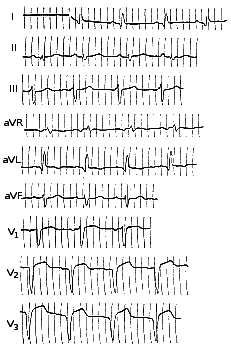 I
II
III
aVR
aVL
aVF
V1
V2
V3